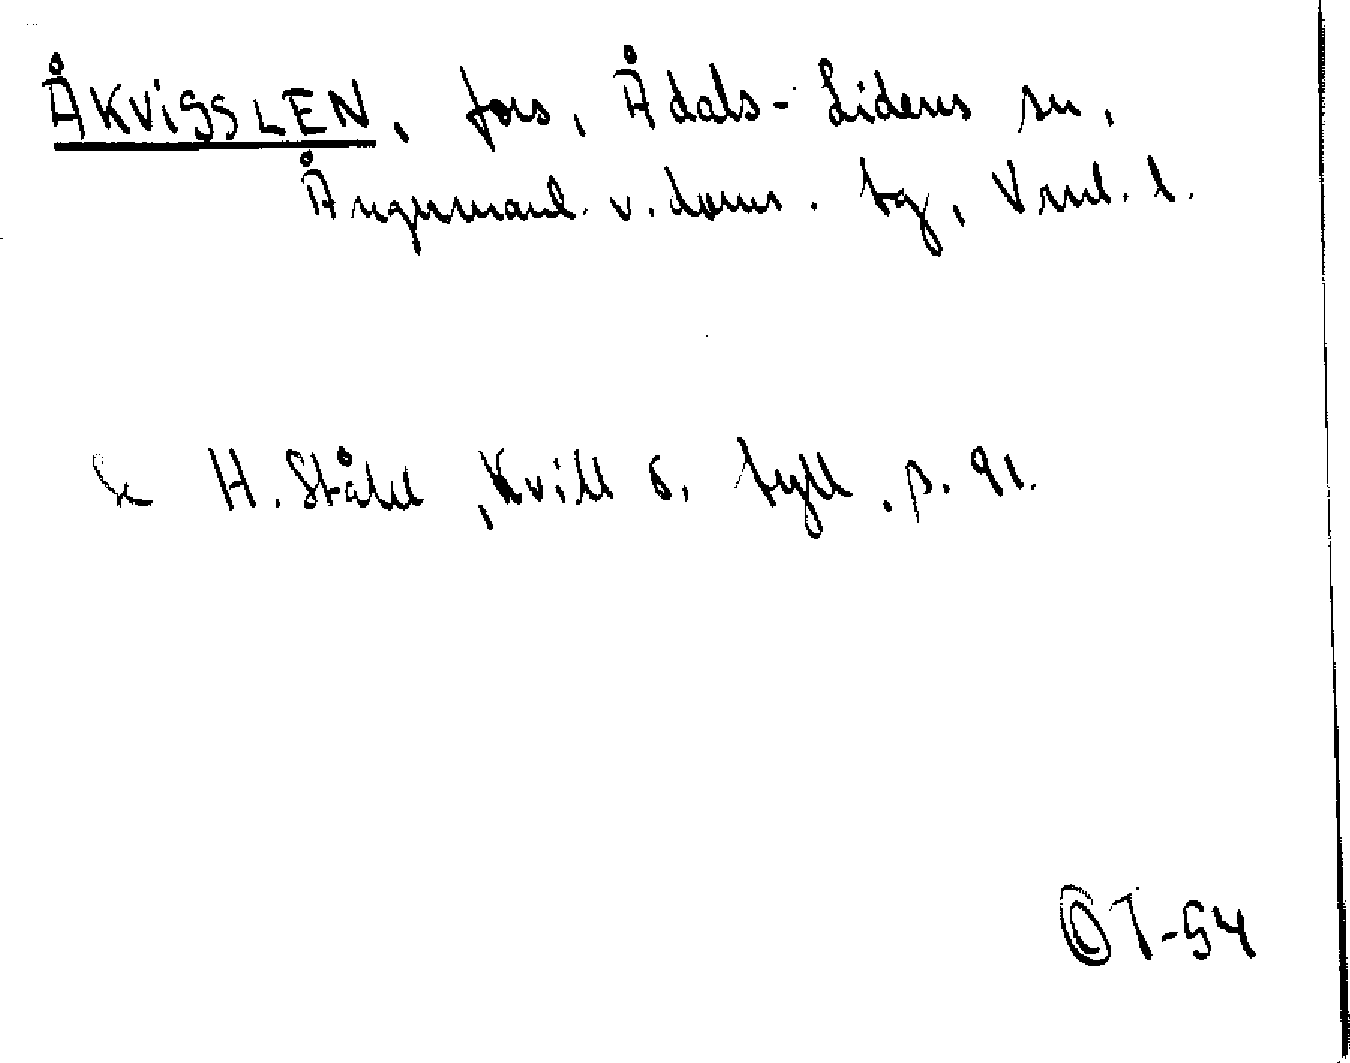 ÅKVISSLEN, fors, Ådals-Lidens sn,
Ångermanl. v. doms. tg, Vnl. l.
H. Ståhl, Kvill o. tyll, p. 91.
ÖT-54